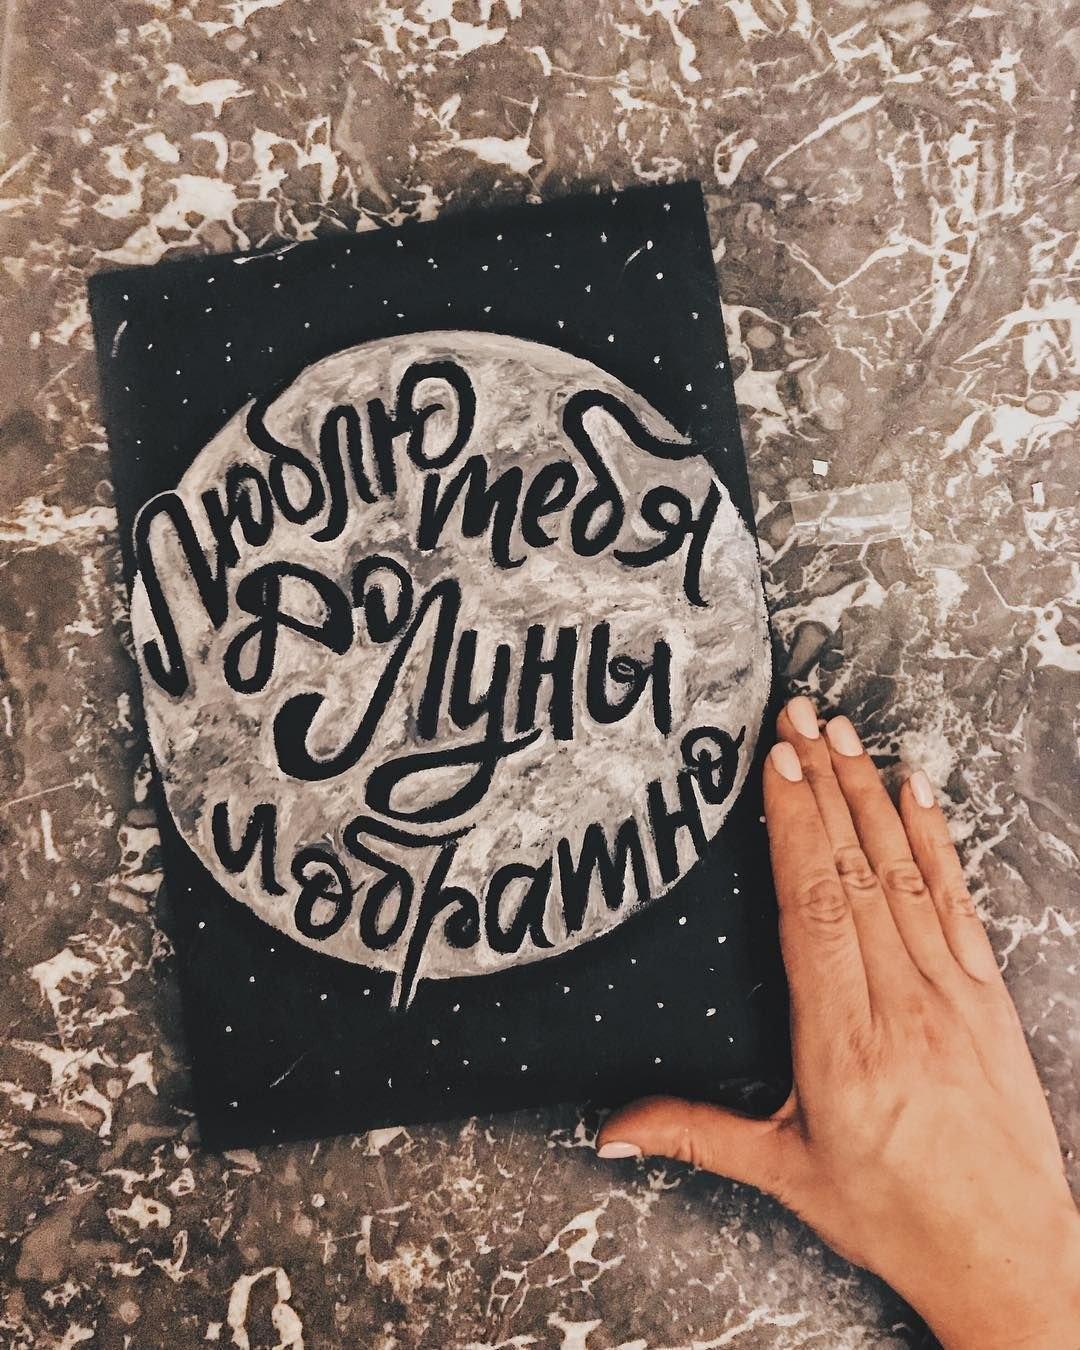 Люблю
тебя
до
Луны
и обратно